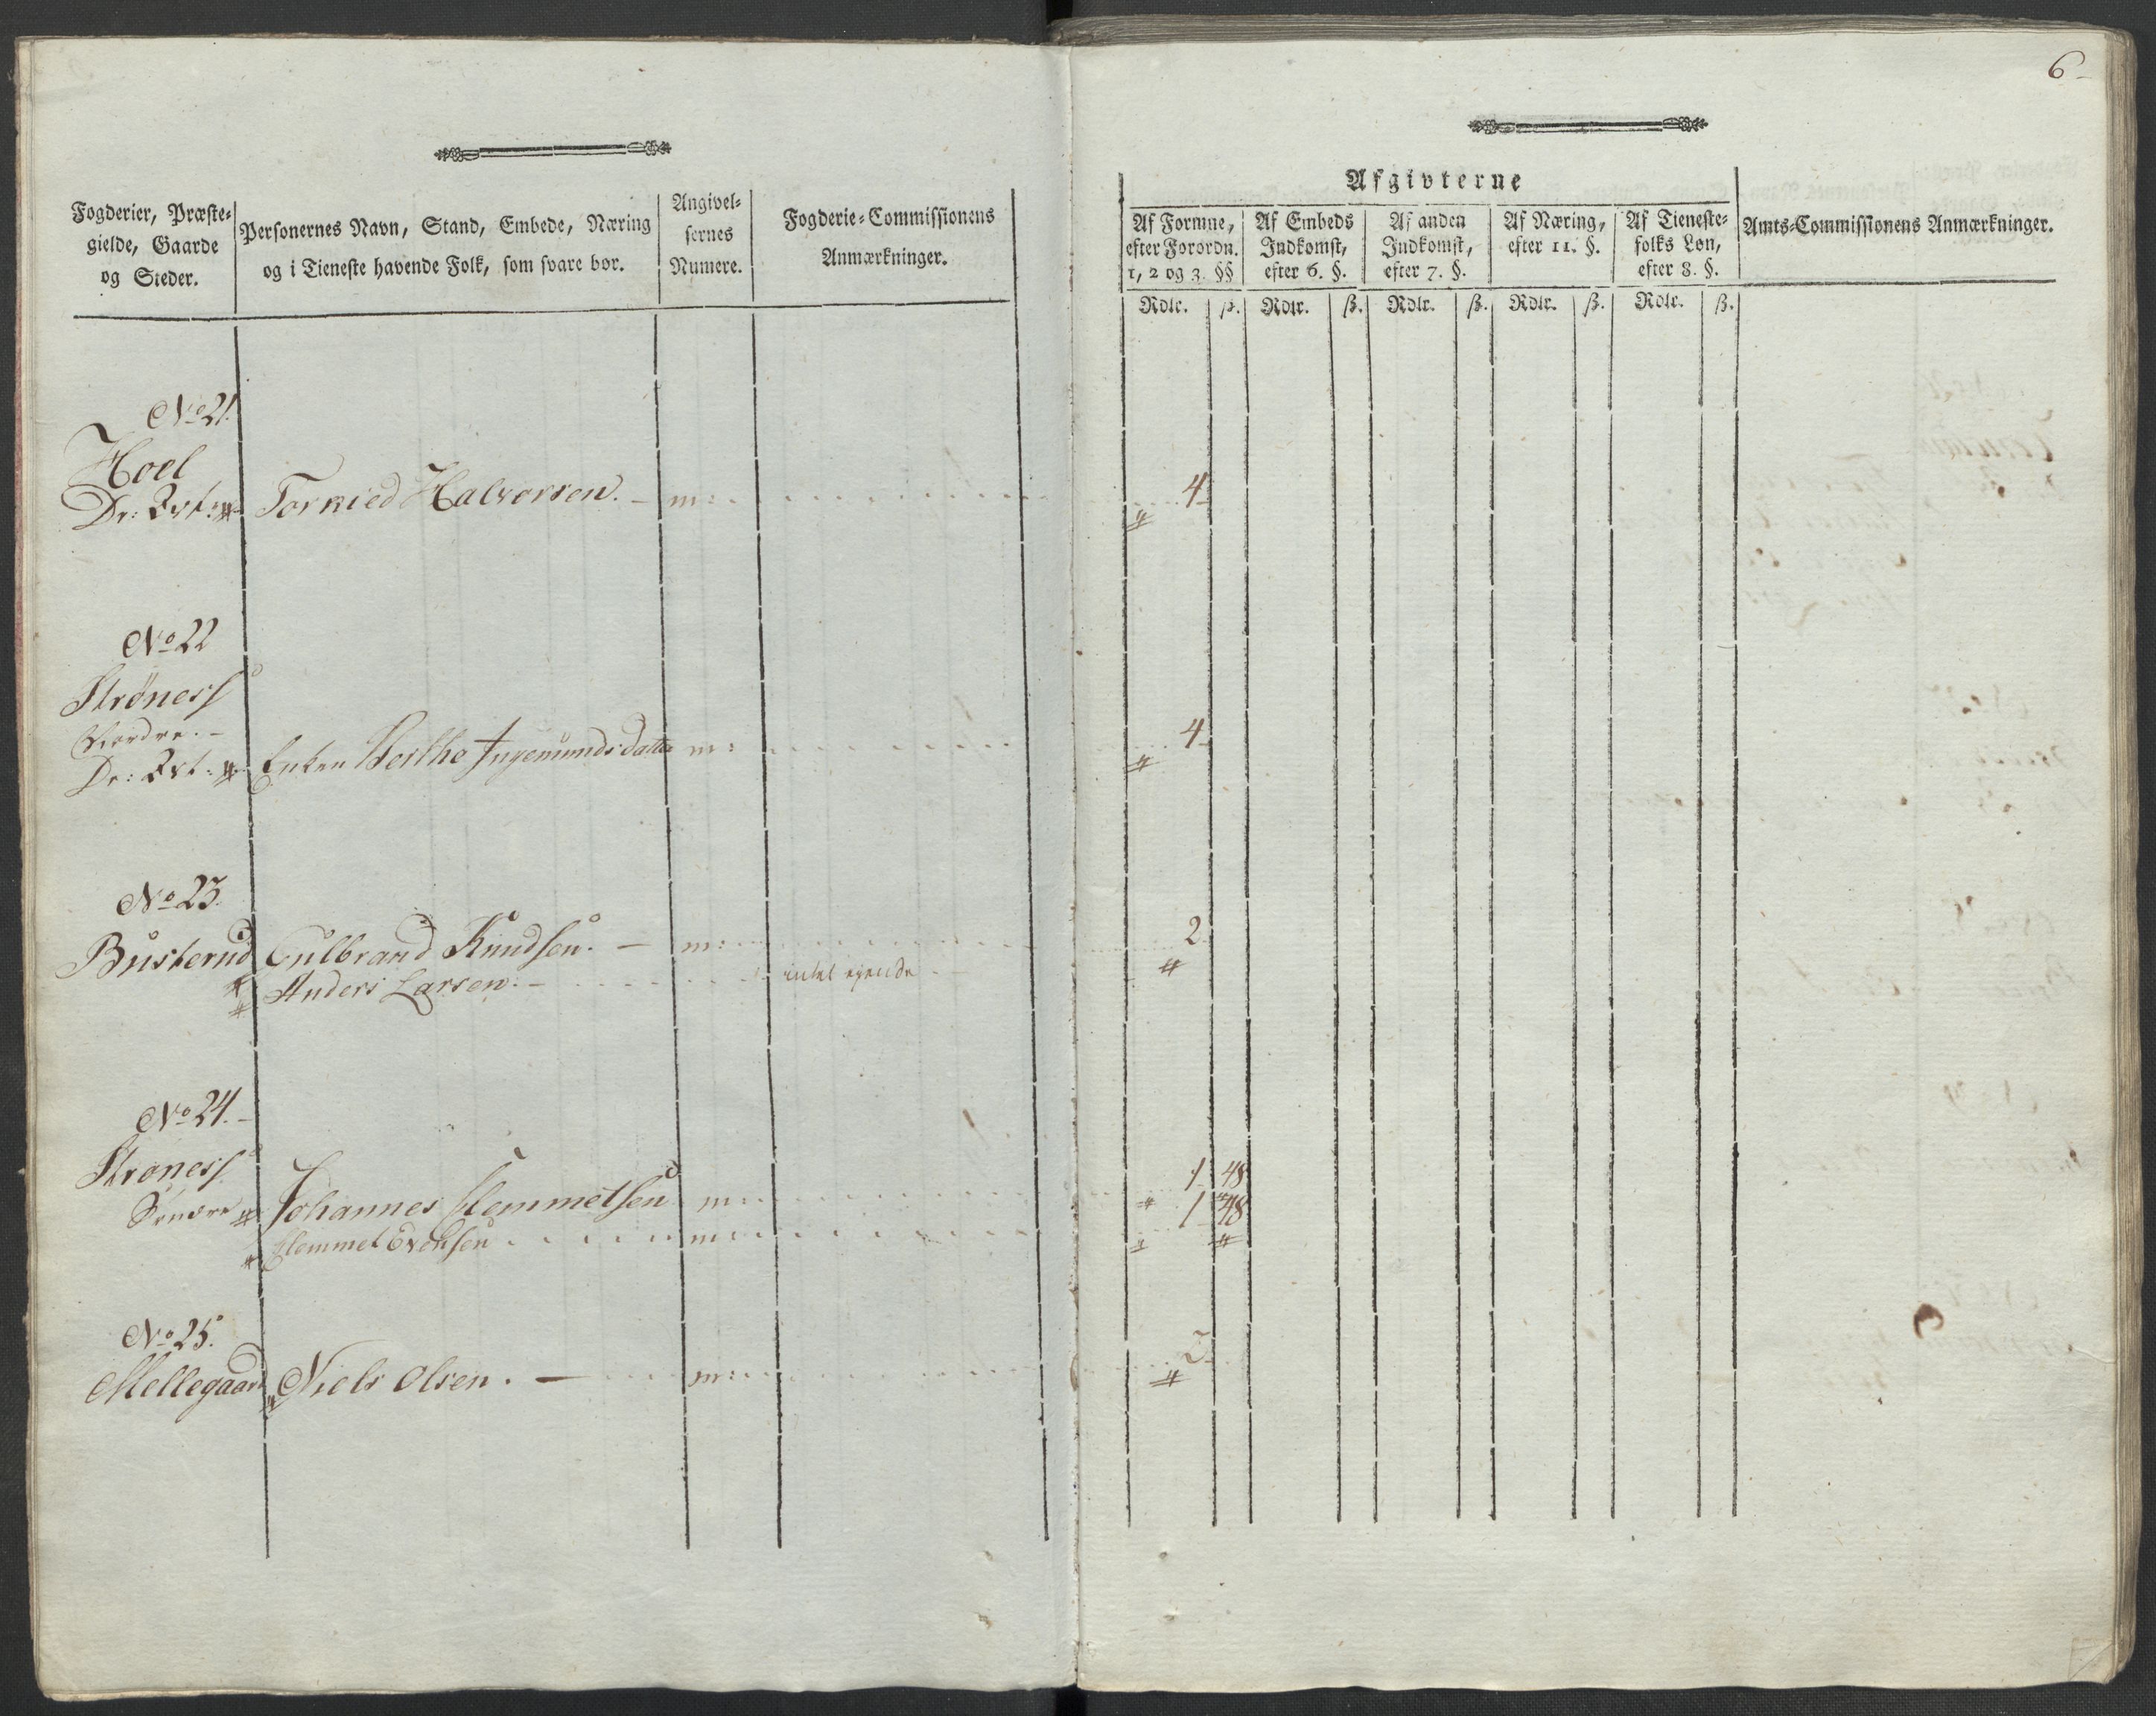 6
Afgivterne
Fogderier, Præste-
gielde, Gaarde
og Steder.
Personernes Navn, Stand, Embede, Næring
og i Tieneste havende Folk, som svare bør.
Angivel-
sernes
Numere.
Fogderie-Commissionens
Anmærkninger.
Af Formue,
efter Forordn.
1, 2 og 3. §§
Af Embeds
Indkomst,
efter 6. §.
Af anden
Indkomst,
efter 7. §.
Af Næring,
efter 11. §.
Af Tieneste-
folks Løn,
efter 8. §.
Amts-Commissionens Anmærkninger.
Rdlr. ß. Rdlr. ß. Rdlr. ß. Rdlr. ß. Rdlr. ß.
No 21.
Hoel
Halvorsen. - m: 4
No 22
Nordre. -
Enken Berthe Ingemundsdatter m: 4
No 23.
Busterud Gulbrand Knudsen. - m: 2
Anders Larsen. - intet ejende
No 24. -
Søndre Johannes Clemmetsen m: 1 48
Clemmet m: 1 48
No 25.
Mellegaard Niels Olsen. - m: 2